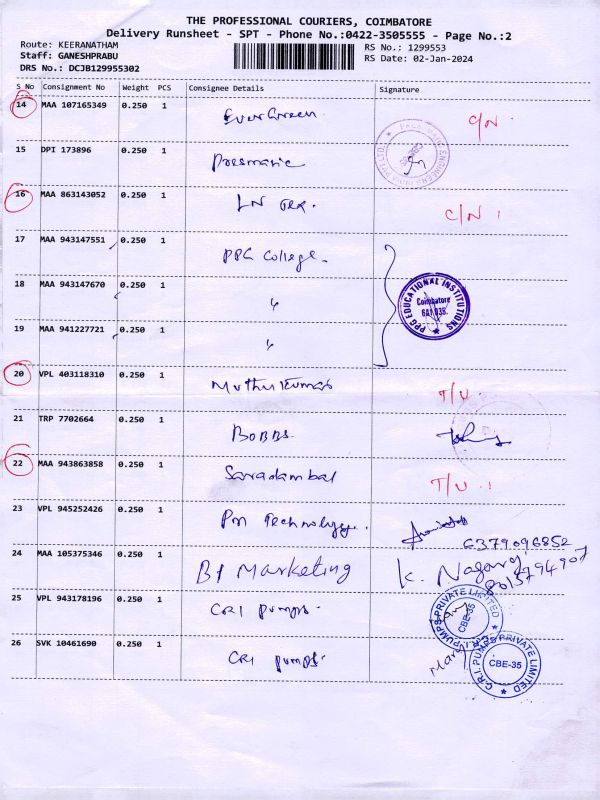 THE PROFESSIONAL COURIERS, COIMBATORE
Delivery Runsheet - SPT - Phone No.:0422-3505555 - Page No.:2
Route: KEERANATHAM
RS No.: 1299553
Staff: GANESHPRABU
RS Date: 02-Jan-2024
DRS No.: DCJB129955302
S No Consignment No Weight PCS Consignee Details Signature
14 MAA 107165349 0.250 1 Ever Green C/N
15 DPI 173896 0.250 1
16 MAA 863143052 0.250 1 LN Tex. C/N
17 MAA 943147551 0.250 1 PPG College
18 MAA 943147670 0.250 1 "
PPG EDUCATIONAL INSTITUTIONS
Coimbatore
641 035.
19 MAA 941227721 0.250 1 "
20 VPL 403118310 0.250 1 Muthu Kumar T/U
21 TRP 7702664 0.250 1 BOBBS
22 MAA 943863858 0.250 1 Saradambal T/U
23 VPL 945252426 0.250 1 PM Technology. 6379096852
24 MAA 105375346 0.250 1 BI Marketing K. Nagaraj
25 VPL 943178196 0.250 1 CRI pumps.
C.R.I. PUMPS PRIVATE LIMITED
CBE-35
26 SVK 10461690 0.250 1 CRI pumps.
C.R.I. PUMPS PRIVATE LIMITED
CBE-35